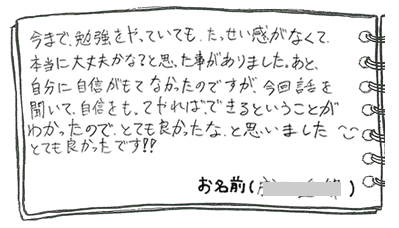 今まで、勉強をやっていても、たっせい感がなくて、
本当に大丈夫かな?と思った事がありました。あと、
自分に自信がもてなかったのですが、今回話を
聞いて、自信をもってやれば、できるということが
わかったので、とても良かったな、と思いました
とても良かったです!!
お名前( )